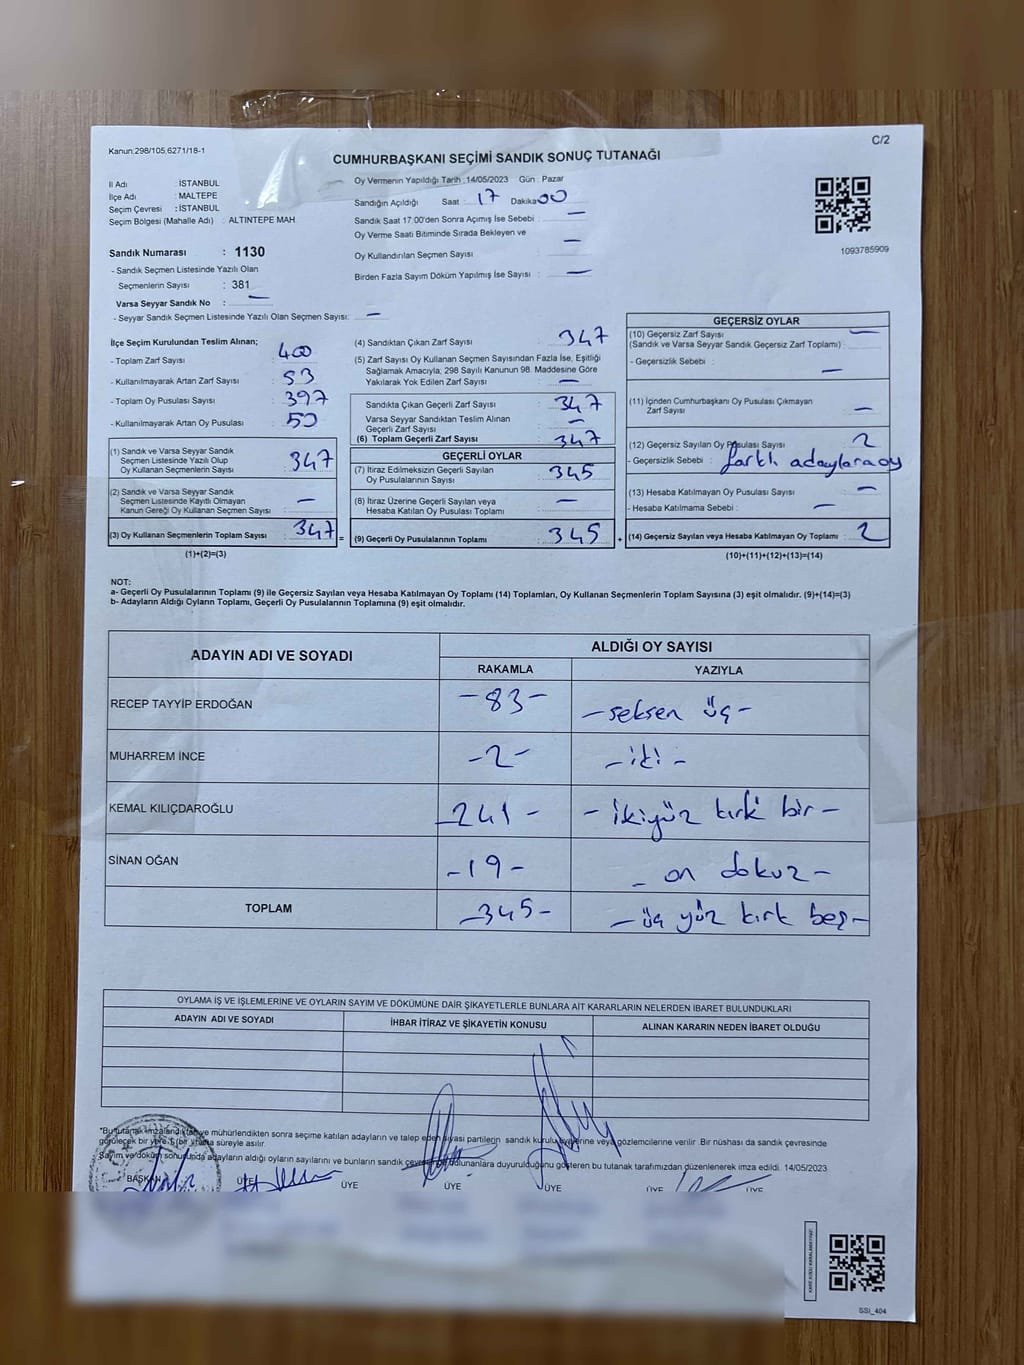 C/2
Kanun:298/105;6271/18-1
CUMHURBAŞKANI SEÇİMİ SANDIK SONUÇ TUTANAĞI
İl Adı : İSTANBUL
İlçe Adı : MALTEPE
Seçim Çevresi : İSTANBUL
Seçim Bölgesi (Mahalle Adı) : ALTINTEPE MAH
Sandık Numarası : 1130
- Sandık Seçmen Listesinde Yazılı Olan
Seçmenlerin Sayısı : 381
Varsa Seyyar Sandık No : —
- Seyyar Sandık Seçmen Listesinde Yazılı Olan Seçmen Sayısı: —
Oy Vermenin Yapıldığı Tarih :14/05/2023 Gün : Pazar
Sandığın Açıldığı Saat : 17 Dakika 00
Sandık Saat 17:00'den Sonra Açımış İse Sebebi : —
Oy Verme Saati Bitiminde Sırada Bekleyen ve
Oy Kullandırılan Seçmen Sayısı : —
Birden Fazla Sayım Döküm Yapılmış İse Sayısı : —
1093785909
İlçe Seçim Kurulundan Teslim Alınan;
- Toplam Zarf Sayısı : 400
- Kullanılmayarak Artan Zarf Sayısı : 53
- Toplam Oy Pusulası Sayısı : 397
- Kullanılmayarak Artan Oy Pusulası : 50
(1) Sandık ve Varsa Seyyar Sandık
Seçmen Listesinde Yazılı Olup
Oy Kullanan Seçmenlerin Sayısı : 347
(2) Sandık ve Varsa Seyyar Sandık
Seçmen Listesinde Kayıtlı Olmayan
Kanun Gereği Oy Kullanan Seçmen Sayısı : —
(3) Oy Kullanan Seçmenlerin Toplam Sayısı : 347 =
(1)+(2)=(3)
(4) Sandıktan Çıkan Zarf Sayısı : 347
(5) Zarf Sayısı Oy Kullanan Seçmen Sayısından Fazla İse, Eşitliği
Sağlamak Amacıyla, 298 Sayılı Kanunun 98. Maddesine Göre
Yakılarak Yok Edilen Zarf Sayısı : —
Sandıkta Çıkan Geçerli Zarf Sayısı : 347
Varsa Seyyar Sandıktan Teslim Alınan
Geçerli Zarf Sayısı : —
(6) Toplam Geçerli Zarf Sayısı : 347
GEÇERLİ OYLAR
(7) İtiraz Edilmeksizin Geçerli Sayılan
Oy Pusulalarının Sayısı : 345
(8) İtiraz Üzerine Geçerli Sayılan veya
Hesaba Katılan Oy Pusulası Toplamı : —
(9) Geçerli Oy Pusulalarının Toplamı : 345 +
GEÇERSİZ OYLAR
(10) Geçersiz Zarf Sayısı : —
(Sandık ve Varsa Seyyar Sandık Geçersiz Zarf Toplamı) :
- Geçersizlik Sebebi : —
(11) İçinden Cumhurbaşkanı Oy Pusulası Çıkmayan
Zarf Sayısı : —
(12) Geçersiz Sayılan Oy Pusulası Sayısı : 2
- Geçersizlik Sebebi : farklı adaylara oy
(13) Hesaba Katılmayan Oy Pusulası Sayısı : —
- Hesaba Katılmama Sebebi : —
(14) Geçersiz Sayılan veya Hesaba Katılmayan Oy Toplamı : 2
(10)+(11)+(12)+(13)=(14)
NOT:
a- Geçerli Oy Pusulalarının Toplamı (9) ile Geçersiz Sayılan veya Hesaba Katılmayan Oy Toplamı (14) Toplamları, Oy Kullanan Seçmenlerin Toplam Sayısına (3) eşit olmalıdır. (9)+(14)=(3)
b- Adayların Aldığı Oyların Toplamı, Geçerli Oy Pusulalarının Toplamına (9) eşit olmalıdır.
ADAYIN ADI VE SOYADI ALDIĞI OY SAYISI
RAKAMLA YAZIYLA
RECEP TAYYİP ERDOĞAN -83- -seksen üç-
MUHARREM İNCE -2- -iki-
KEMAL KILIÇDAROĞLU -241- -ikiyüz kırk bir-
SİNAN OĞAN -19- -on dokuz-
TOPLAM -345- -üç yüz kırk beş-
OYLAMA İŞ VE İŞLEMLERİNE VE OYLARIN SAYIM VE DÖKÜMÜNE DAİR ŞİKAYETLERLE BUNLARA AİT KARARLARIN NELERDEN İBARET BULUNDUKLARI
ADAYIN ADI VE SOYADI İHBAR İTİRAZ VE ŞİKAYETİN KONUSU ALINAN KARARIN NEDEN İBARET OLDUĞU
"Bu tutanak imzalandıktan ve mühürlendikten sonra seçime katılan adayların ve talep eden siyasi partilerin sandık kurulu üyelerine veya gözlemcilerine verilir .Bir nüshası da sandık çevresinde
görülecek bir yere süreyle asılır.
Sayım ve döküm sonucunda adayların aldığı oyların sayılarını ve bunların sandık çevresinde bulunanlara duyurulduğunu gösteren bu tutanak tarafımızdan düzenlenerek imza edildi. 14/05/2023
BAŞKAN ÜYE ÜYE ÜYE ÜYE ÜYE ÜYE
SSİ_404